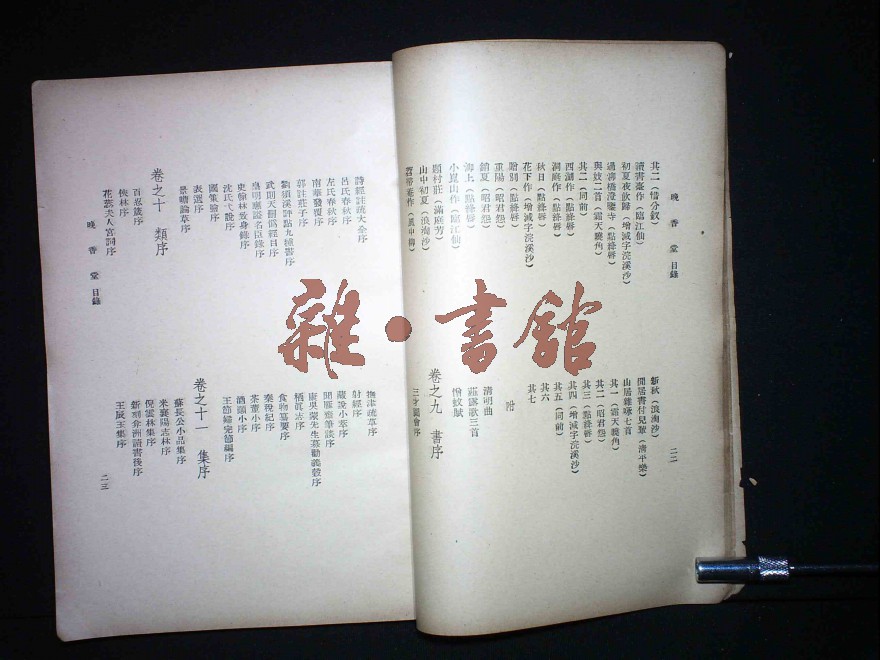 晚香堂目錄
二二
其二（惜分釵）
讀書臺作（臨江仙）
初夏夜飲歸（增減字浣溪沙）
過壽橋澄鑒寺（點絳唇）
與妓二首（霜天曉角）
其二（同前）
西湖作（點絳唇）
洞庭作（點絳唇）
秋日（點絳唇）
花下作（增減字浣溪沙）
贈別（點絳唇）
重陽（昭君怨）
銷夏（昭君怨）
海上（點絳唇）
小崑山作（臨江仙）
題村莊（滿庭芳）
山中初夏（浪淘沙）
新秋（浪淘沙）
閒居書付兒輩（清平樂）
山居雜咏七首
其一（霜天曉角）
其二（昭君怨）
其三（點絳唇）
其四（增減字浣溪沙）
其五（同前）
其六
其七
附
清明曲
莊蹊歌三首
憎蚊賦
卷之九 書序
三才圖會序
詩經註疏大全序
呂氏春秋序
左氏春秋序
南華發覆序
郭註莊子序
劉須溪評點九種書序
武則天刪僞經目序
皇明應諡名臣錄序
史翰林致身錄序
沈氏弋說序
國策膾序
表選序
景曈論草序
卷之十 類序
百忍箴序
俠林序
花蕊夫人宮詞序
晚香堂目錄
撫津疏草序
射經序
藏說小萃序
閒雁齋筆談序
唐吳蒙先生募勸義穀序
栖眞志序
食物纂要序
秦稅紀序
茶董小序
酒顚小序
王節婦完節編序
卷之十一 集序
蘇長公小品集序
米襄陽志林序
倪雲林集序
新刻弇洲讀書後序
王辰玉集序
二三
雜·書館